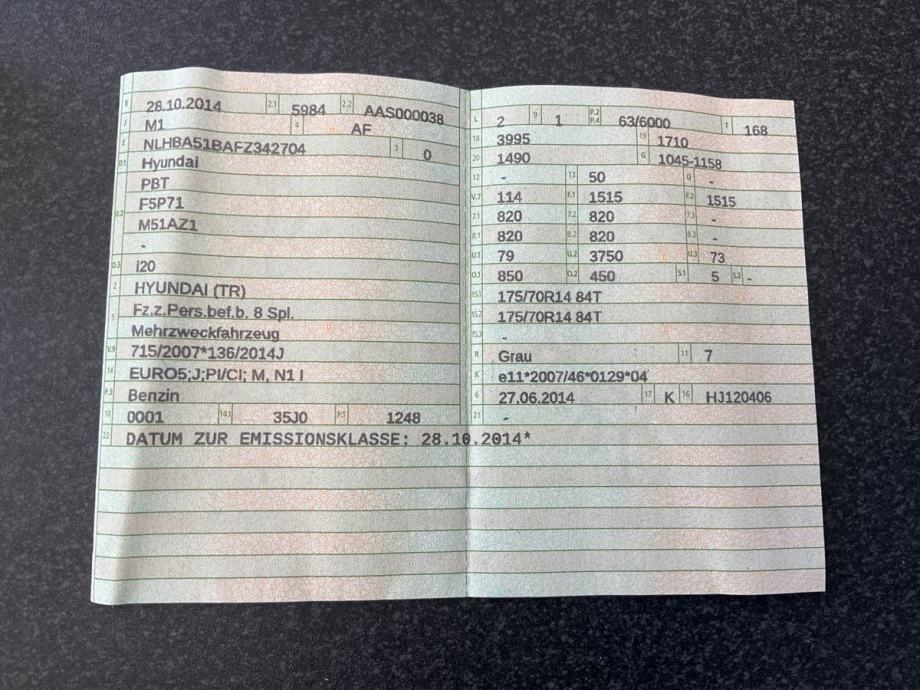 B 28.10.2014 2.1 5984 2.2 AAS000038
J M1 4 AF
E NLHBA51BAFZ342704 3 0
D.1 Hyundai
PBT
D.2 F5P71
M51AZ1
-
D.3 i20
2 HYUNDAI (TR)
5 Fz.z.Pers.bef.b. 8 Spl.
Mehrzweckfahrzeug
V.9 715/2007*136/2014J
14 EURO5;J;PI/CI; M, N1 I
P.3 Benzin
10 0001 14.1 35J0 P.1 1248
22 DATUM ZUR EMISSIONSKLASSE: 28.10.2014*
L 2 9 1 P.2 P.4 63/6000 T 168
18 3995 19 1710
20 1490 G 1045-1158
12 - 13 50 Q -
V.7 114 F.1 1515 F.2 1515
7.1 820 7.2 820 7.3 -
8.1 820 8.2 820 8.3 -
U.1 79 U.2 3750 U.3 73
O.1 850 O.2 450 S.1 5 S.2 -
15.1 175/70R14 84T
15.2 175/70R14 84T
15.3 -
R Grau 11 7
K e11*2007/46*0129*04
6 27.06.2014 17 K 16 HJ120406
21 -